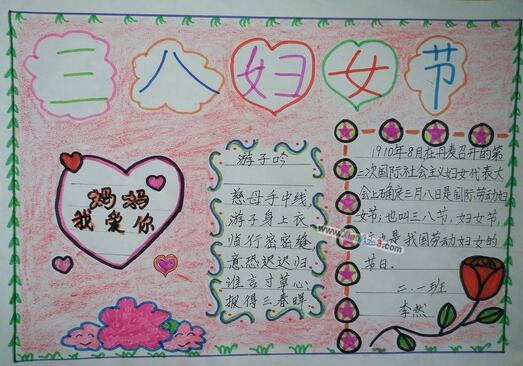 三八妇女节
妈妈
我爱你
游子吟
慈母手中线，
游子身上衣
临行密密缝
意恐迟迟归.
谁言寸草心
报得三春晖
1910年8月在丹麦召开的第
二次国际社会主义妇女代表大
会上确定三月八日是国际劳动妇
女节，也叫三八节，妇女节，
也是我国劳动妇女的
节日.
二.一班
李然